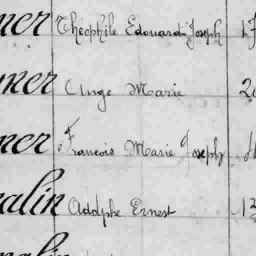 ner Théophile Edouard Joseph 17
ner Ange Marie 2
ner François Marie Joseph
alin Adolphe Ernest 13